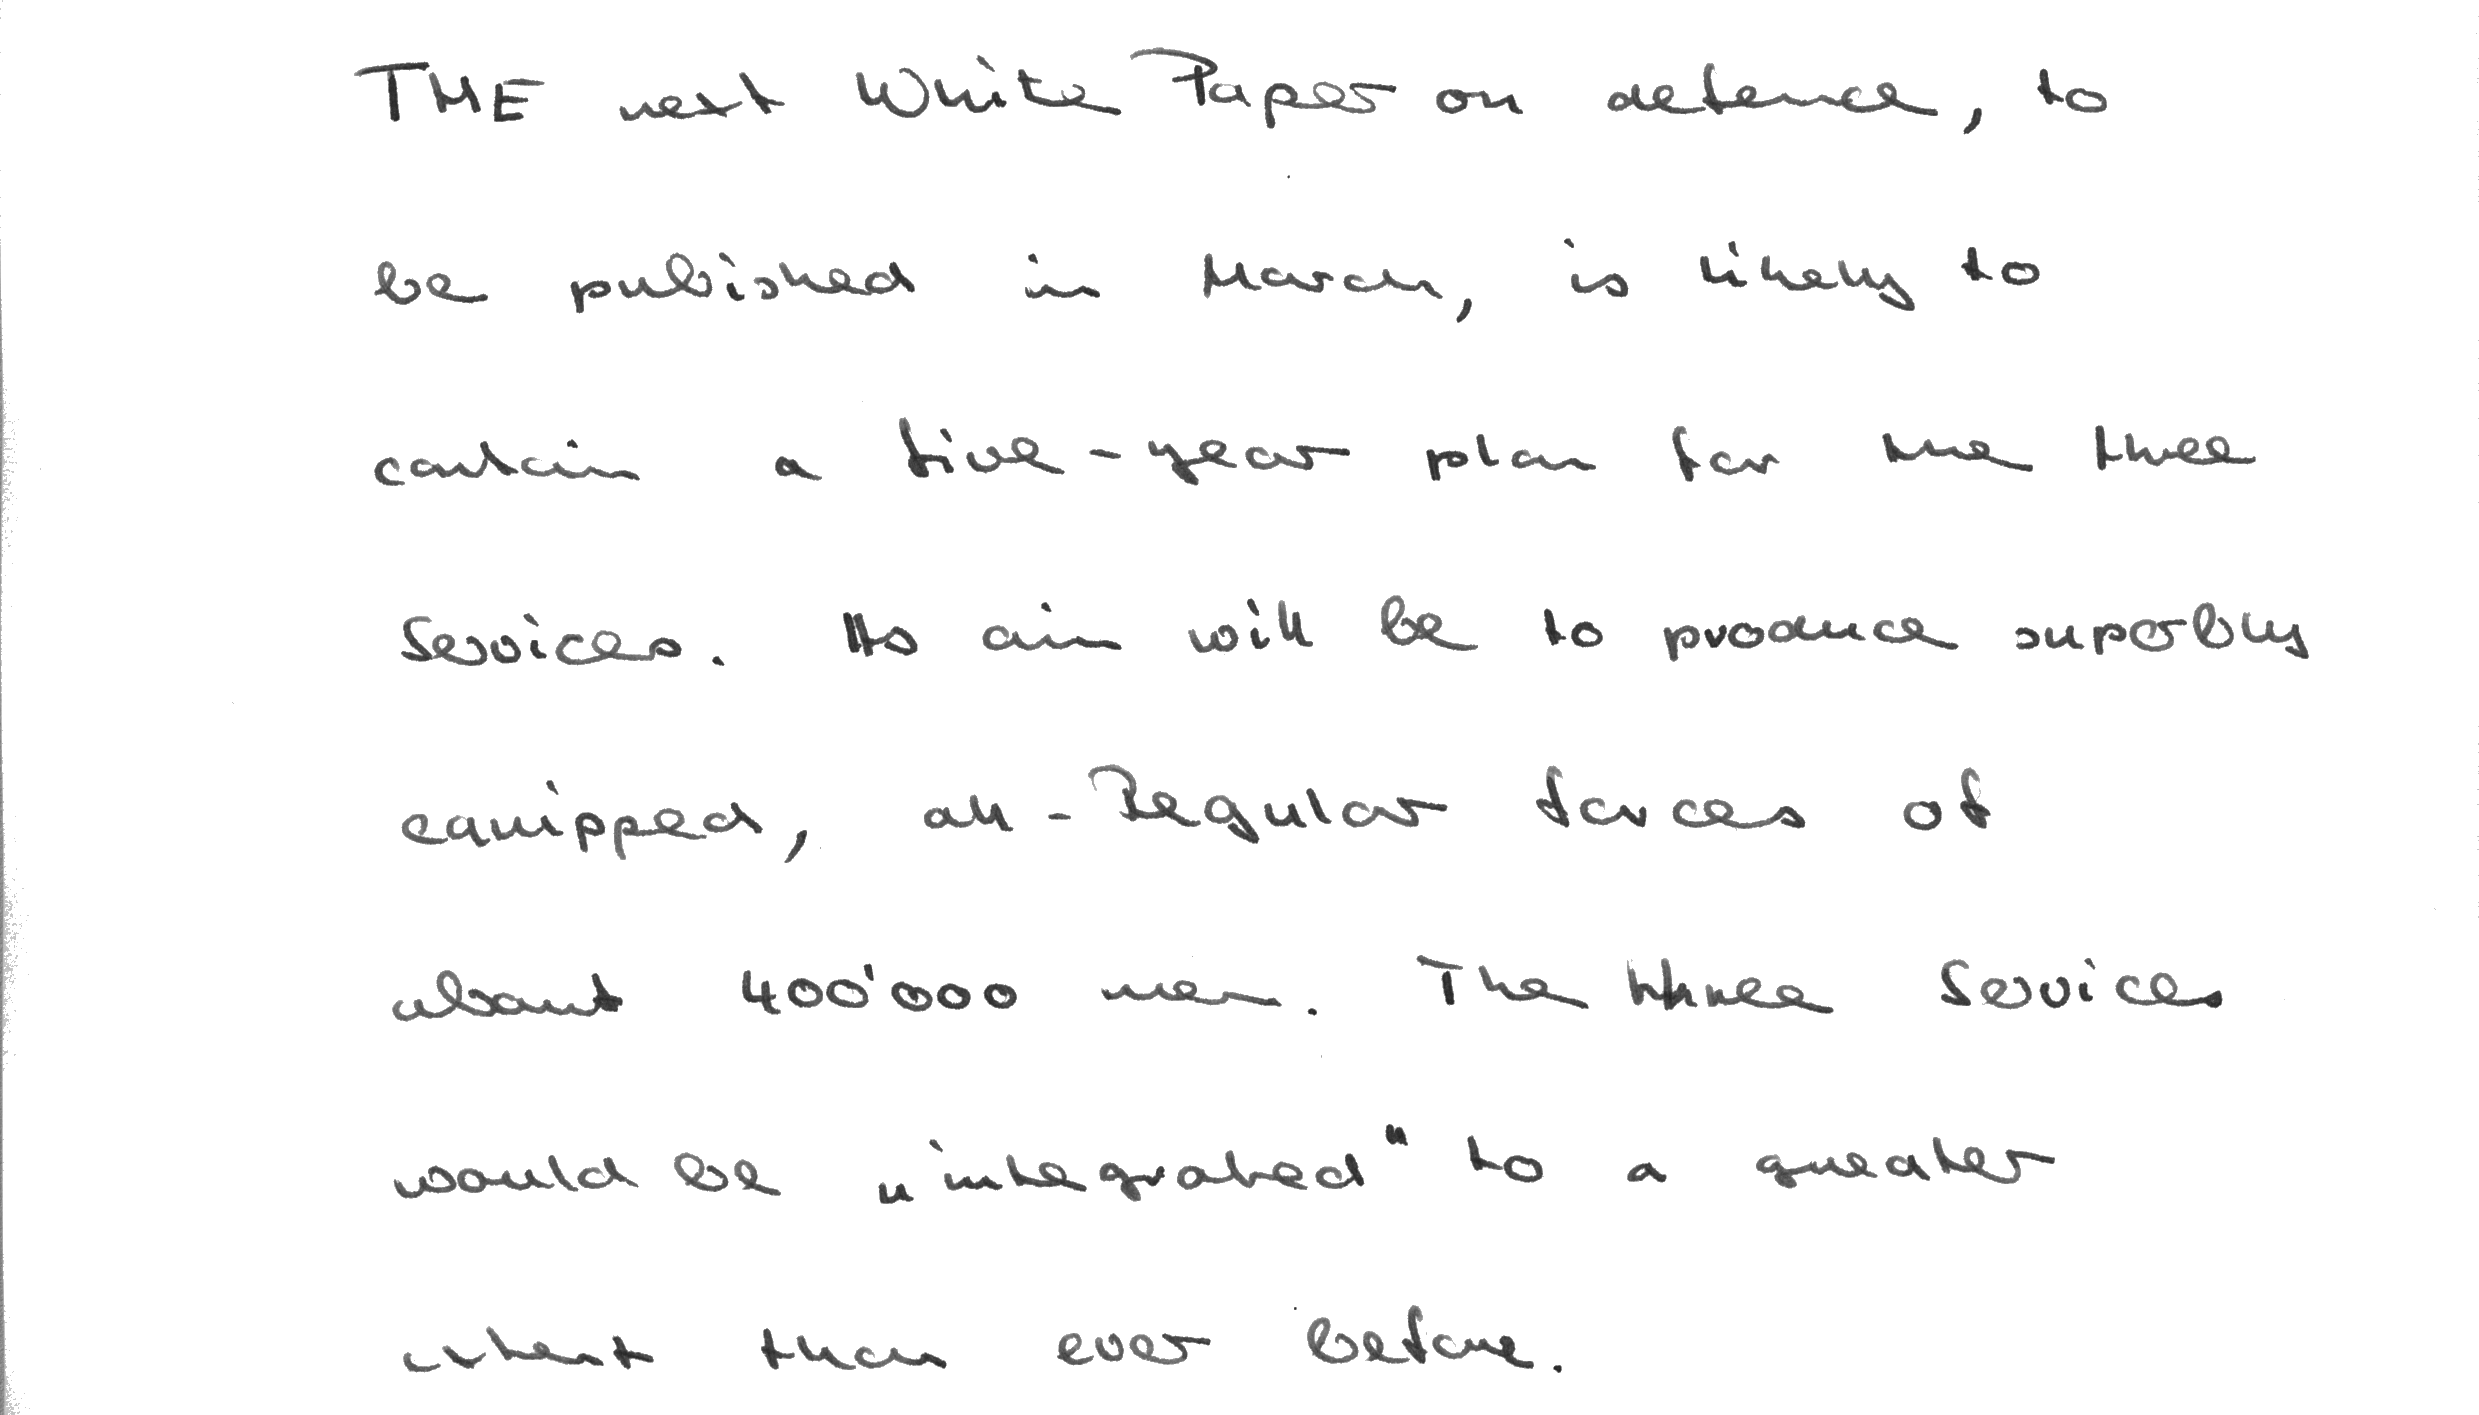 THE next White Paper on defence, to
be published in March, is likely to
contain a five-year plan for the three
Services. Its aim will be to produce superbly
equipped, all-Regular forces of
about 400'000 men. The three Services
would be „integrated" to a greater
extent than ever before.